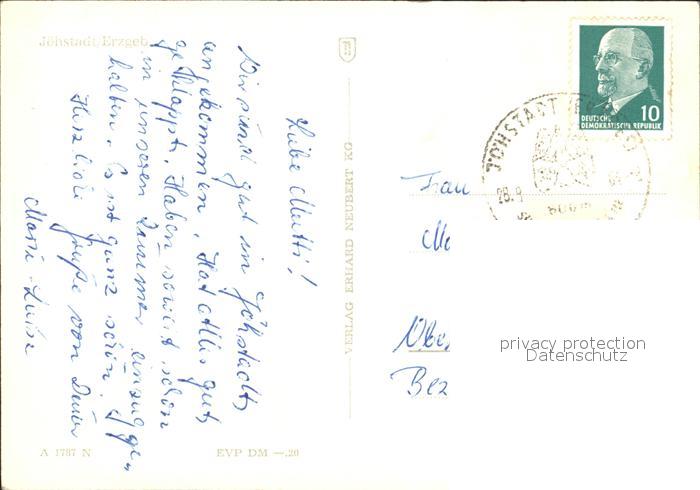 Jöhstadt/Erzgeb.
Liebe Mutti!
Wir sind gut in Jöhstadt,
angekommen. Hat alles gut,
geklappt. Haben soweit schon
in unseren Zimmer einzug ge,
halten. Es ist ganz schön.
Herzliche Grüße von Deiner
Marie-Luise
A 1787 N
EVP DM —.20
VERLAG ERHARD NEUBERT KG
DEUTSCHE
DEMOKRATISCHE REPUBLIK
10
JÖHSTADT
28.9
800m
Frau
Obe
Bez
privacy protection
Datenschutz